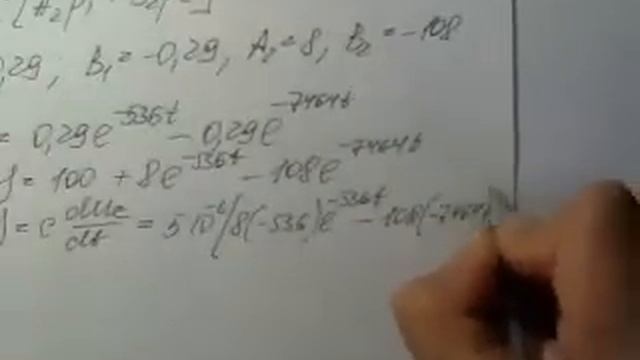 [A₂p₁ - B₂p₂]
0,29; B₁ = -0,29, A₂ = 8, B₂ = -108
= 0,29e^-536t - 0,29e^-7464t
) = 100 + 8e^-536t - 108e^-7464t
) = C dUc/dt = 5 10^-6 (8(-536)e^-536t - 108(-7464)